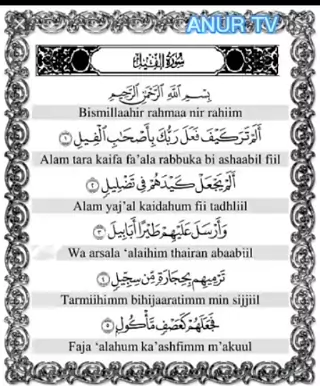 ANUR TV
سُورَةُ الْفِيلِ
بِسْمِ اللَّهِ الرَّحْمَٰنِ الرَّحِيمِ
Bismillaahir rahmaa nir rahiim
أَلَمْ تَرَ كَيْفَ فَعَلَ رَبُّكَ بِأَصْحَابِ الْفِيلِ ١
Alam tara kaifa fa'ala rabbuka bi ashaabil fiil
أَلَمْ يَجْعَلْ كَيْدَهُمْ فِي تَضْلِيلٍ ٢
Alam yaj'al kaidahum fii tadhliil
وَأَرْسَلَ عَلَيْهِمْ طَيْرًا أَبَابِيلَ ٣
Wa arsala 'alaihim thairan abaabiil
تَرْمِيهِمْ بِحِجَارَةٍ مِّن سِجِّيلٍ ٤
Tarmiihimm bihijaaratimm min sijjiil
فَجَعَلَهُمْ كَعَصْفٍ مَّأْكُولٍ ٥
Faja 'alahum ka'ashfimm m'akuul